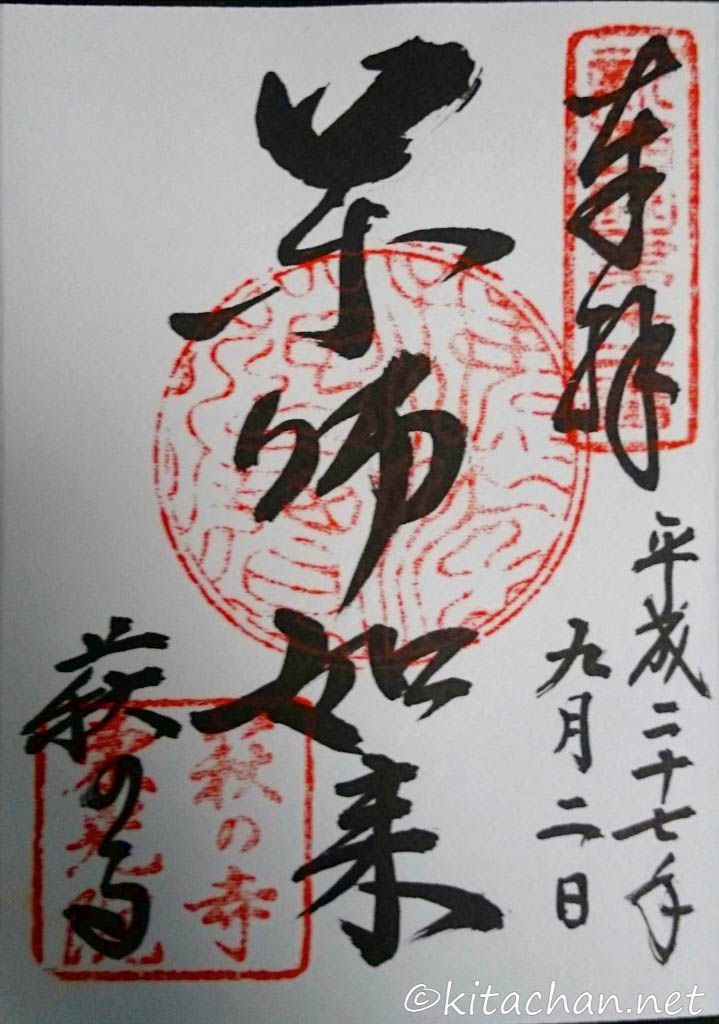 奉拝
平成二十七年
九月二日
薬師如来
萩の寺
萩の寺
©kitachan.net